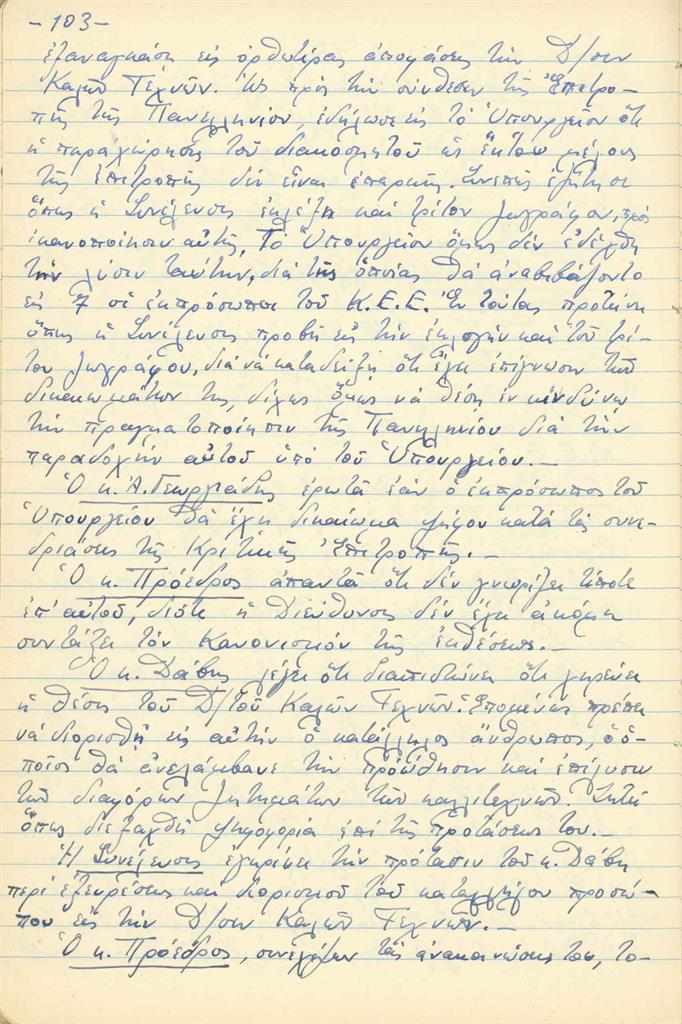 -103-
ἐξαναγκάσῃ εἰς ὀρθοτέρας ἀποφάσεις τὴν Δ/σιν
Καλῶν Τεχνῶν. Ὡς πρὸς τὴν σύνθεσιν τῆς Ἐπιτρο-
πῆς τῆς Πανελληνίου, ἐδήλωσε εἰς τὸ Ὑπουργεῖον ὅτι
ἡ παραχώρησις τοῦ διακοσμητοῦ ὡς ἕκτου μέλους
τῆς ἐπιτροπῆς δὲν εἶναι ἐπαρκής. Συνεπῶς ἐζήτησε
ὅπως ἡ Συνέλευσις ἐκλέξῃ καὶ τρίτον ζωγράφον, πρὸς
ἱκανοποίησιν αὐτῆς. Τὸ Ὑπουργεῖον ὅμως δὲν ἐδέχθη
τὴν λύσιν ταύτην, διὰ τῆς ὁποίας θὰ ἀνεβιβάζοντο
εἰς 7 οἱ ἐκπρόσωποι τοῦ Κ.Ε.Ε. Ἐν τούτοις προτείνει
ὅπως ἡ Συνέλευσις προβῇ εἰς τὴν ἐκλογὴν καὶ τοῦ τρί-
του ζωγράφου, διὰ νὰ καταδείξῃ ὅτι ἔχει ἐπίγνωσιν τῶν
δικαιωμάτων της, δίχως ὅμως νὰ θέσῃ ἐν κινδύνῳ
τὴν πραγματοποίησιν τῆς Πανελληνίου διὰ τὴν
παραδοχὴν αὐτοῦ ὑπὸ τοῦ Ὑπουργείου.-
Ὁ κ. Ἀ. Γεωργιάδης ἐρωτᾶ ἐὰν ὁ ἐκπρόσωπος τοῦ
Ὑπουργείου θὰ ἔχῃ δικαίωμα ψήφου κατὰ τὰς συνε-
δριάσεις τῆς Κριτικῆς Ἐπιτροπῆς.-
Ὁ κ. Πρόεδρος ἀπαντᾶ ὅτι δὲν γνωρίζει τίποτε
ἐπ' αὐτοῦ, διότι ἡ Διεύθυνσις δὲν ἔχει ἀκόμη
συντάξει τὸν Κανονισμὸν τῆς ἐκθέσεως.-
Ὁ κ. Δάβης λέγει ὅτι διαπιστώνει ὅτι χηρεύει
ἡ θέσις τοῦ Δ/τοῦ Καλῶν Τεχνῶν. Ἑπομένως πρέπει
νὰ διορισθῇ εἰς αὐτὴν ὁ κατάλληλος ἄνθρωπος, ὁ ὁ-
ποῖος θὰ ἀνελάμβανε τὴν προώθησιν καὶ ἐπίλυσιν
τῶν διαφόρων ζητημάτων τῶν καλλιτεχνῶν. Ζητεῖ
ὅπως διεξαχθῇ ψηφοφορία ἐπὶ τῆς προτάσεώς του.-
Ἡ Συνέλευσις ἐγκρίνει τὴν πρότασιν τοῦ κ. Δάβη
περὶ ἐξευρέσεως καὶ διορισμοῦ τοῦ καταλλήλου προσώ-
που εἰς τὴν Δ/σιν Καλῶν Τεχνῶν.-
Ὁ κ. Πρόεδρος, συνεχίζων τὰς ἀνακοινώσεις του, το-